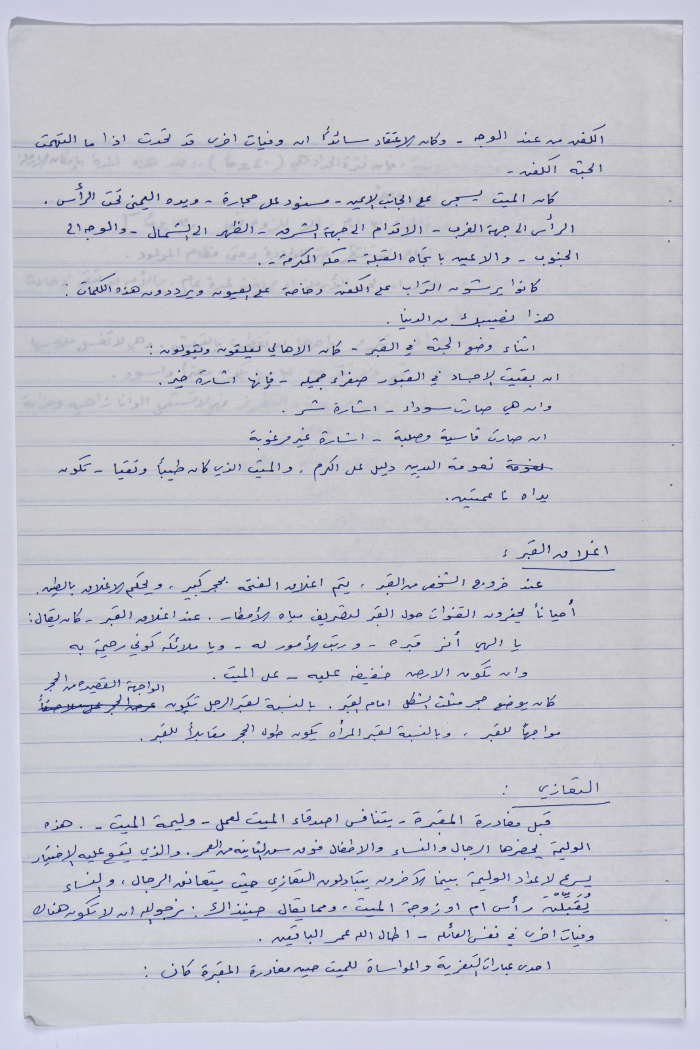 الكفن من عند الوجه - وكان الاعتقاد سائداً ان وفيات اخرى قد تحدث اذا ما التهمت
الجثة الكفن -
كان الميت يسجى على الجانب الايمن - مسنود على حجارة - ويده اليمنى تحت الرأس .
الرأس الى جهة الغرب - الاقدام الى جهة الشرق - الظهر الى الشمال - والوجه الى
الجنوب - والاعين باتجاه القبلة - مكة المكرمة - .
كانوا يرشون التراب على الكفن وخاصة على العيون ويرددون هذه الكلمات :
هذا نصيبك من الدنيا .
اثناء وضع الجثة في القبر - كان الاهالي يعلقون ويقولون :
ان بقيت الاجساد في القبور صفراء جميلة - فإنها اشارة خير .
وان هي صارت سوداء - اشارة شر .
ان صارت قاسية وصلبة - اشارة غير مرغوبة
نعومة اليدين دليل على الكرم . والميت الذي كان طيباً وتقيا - تكون
يداه ناعمتين .
اغلاق القبر :
عند خروج الشخص من القبر ، يتم اغلاق الفتحة بحجر كبير ، ويحكم الاغلاق بالطين .
أحياناً يحفرون القنوات حول القبر لتصريف مياه الأمطار . عند اغلاق القبر - كان يقال :
يا الهي أنر قبره - ورتب الأمور له - ويا ملائكة كوني رحيمة به
وان تكون الارض خفيفة عليه - على الميت .
الواجهة القصيرة من الحجر
كان يوضع حجر مثلث الشكل امام القبر . بالنسبة لقبر الرجل تكون
مواجهاً للقبر ، وبالنسبة لقبر المرأة يكون طول الحجر مقابلاً للقبر .
التعازي :
قبل مغادرة المقبرة - يتنافس اصدقاء الميت لعمل - وليمة الميت - . هذه
الوليمة يحضرها الرجال والنساء والاطفال فوق سن الثانية من العمر . والذي يقع عليه الاختيار
يسرع لاعداد الوليمة بينما الآخرون يتبادلون التعازي حيث يتعانق الرجال ، والنساء
يُقَبِّلْنَ رأس ام او زوجة الميت ، ومما يقال حينذاك : نرجو الله ان لا تكون هناك
وفيات اخرى في نفس العائلة - اطال الله عمر الباقين .
احدى عبارات التعزية والمواساة للميت حين مغادرة المقبرة كان :